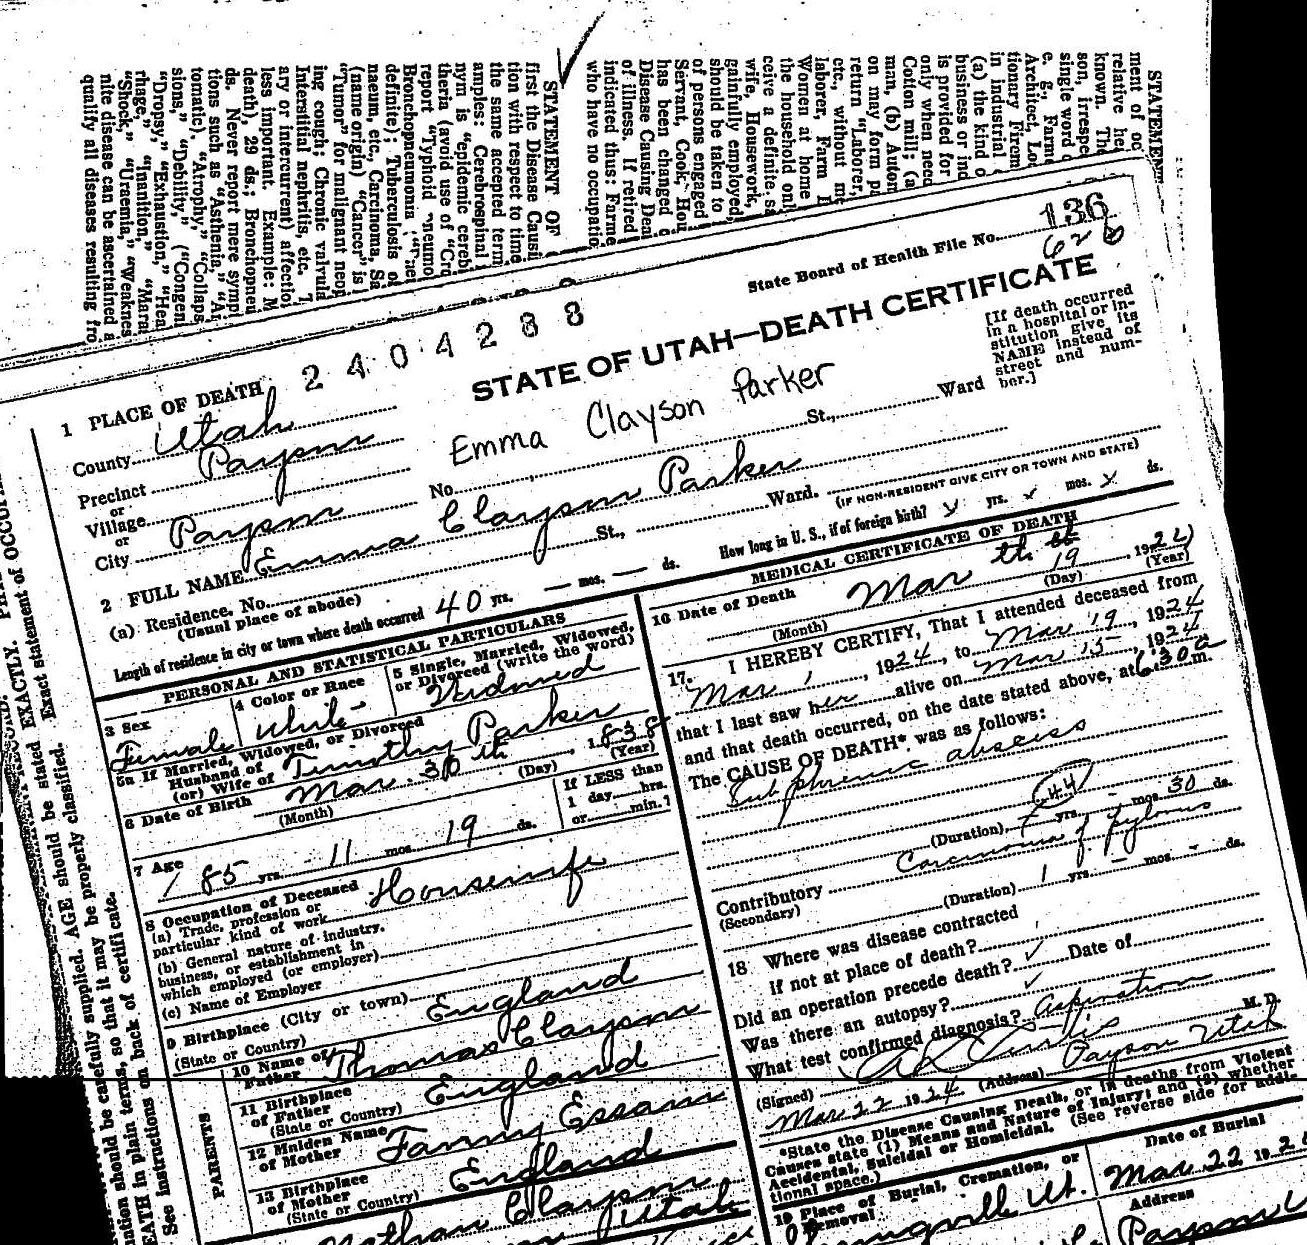 STATEMENT
ment of oc
relative hea
known. Th
son, irrespe
single word o
e. g., Farme
Architect, Lo
tionary Firem
in industrial
(a) the kind o
business or ind
is provided for
only when need
Cotton mill; (a
man, (b) Autom
on may form pa
return "Laborer,
etc., without mo
laborer, Farm l
Women at home
the household onl
ceive a definite sa
wife, Housework,
gainfully employed,
should be taken to
of persons engaged
Servant, Cook, Hou
has been changed o
Disease Causing Dea
of illness. If retired
indicated thus: Farme
who have no occupatio
STATEMENT OF C
first the Disease Causi
tion with respect to time
the same accepted term
amples: Cerebrospinal
nym is "epidemic cerebr
theria (avoid use of "Cro
report "Typhoid pneumo
Bronchopneumonia
definite); Tuberculosis of
naeum, etc., Carcinoma, Sa
(name origin) "Cancer" is l
"Tumor" for malignant neop
ing cough; Chronic valvula
Interstitial nephritis, etc. T
ary or intercurrent) affectio
less important. Example: M
death), 29 ds.; Bronchopneu
ds. Never report mere sympt
tions such as "Asthenia," "An
tomatic), "Atrophy," "Collaps
sions," "Debility," ("Congeni
"Dropsy," "Exhaustion," "Hea
rhage," "Inanition," "Mara
"Shock," "Uraemia," "Weaknes
nite disease can be ascertained a
qualify all diseases resulting fro
136
State Board of Health File No.
626
2404288
STATE OF UTAH—DEATH CERTIFICATE
[If death occurred in a hospital or institution give its NAME instead of street and number.]
1 PLACE OF DEATH
County Utah
Emma Clayson Parker
Precinct Payson
or
Village
No. St., Ward
or
City Payson
2 FULL NAME Emma Clayson Parker
(a) Residence. No. St., Ward. (IF NON-RESIDENT GIVE CITY OR TOWN AND STATE)
(Usual place of abode)
Length of residence in city or town where death occurred 40 yrs. — mos. — ds. How long in U. S., if of foreign birth? yrs. mos. ds.
PERSONAL AND STATISTICAL PARTICULARS
3 Sex Female
4 Color or Race White
5 Single, Married, Widowed, or Divorced (write the word) Widowed
5a If Married, Widowed, or Divorced
Husband of
(or) Wife of Timothy Parker
6 Date of Birth Mar. 30th, 1838
(Month) (Day) (Year)
7 Age 85 yrs. 11 mos. 19 ds.
If LESS than 1 day hrs. or min.?
8 Occupation of Deceased
(a) Trade, profession or particular kind of work Housewife
(b) General nature of industry, business, or establishment in which employed (or employer)
(c) Name of Employer
9 Birthplace (City or town)
(State or Country) England
PARENTS
10 Name of Father Thomas Clayson
11 Birthplace of Father (State or Country) England
12 Maiden Name of Mother Fanny Essam
13 Birthplace of Mother (State or Country) England
Nathan Clayson
Utah
MEDICAL CERTIFICATE OF DEATH
16 Date of Death Mar 19 th, 1924
(Month) (Day) (Year)
17. I HEREBY CERTIFY, That I attended deceased from
Mar 1, 1924, to Mar 19, 1924
that I last saw her alive on Mar 15, 1924
and that death occurred, on the date stated above, at 6:30 a m.
The CAUSE OF DEATH*, was as follows:
Sub phrenic abscess
44
(Duration) yrs. mos. 30 ds.
Contributory Carcinoma of pylorus
(Secondary)
(Duration) 1 yrs. - mos. - ds.
18 Where was disease contracted
If not at place of death?
Did an operation precede death? Date of
Was there an autopsy?
What test confirmed diagnosis? Aspiration
(Signed) Curtis M. D.
Mar 22 1924 (Address) Payson Utah
*State the Disease Causing Death, or in deaths from Violent Causes state (1) Means and Nature of Injury; and (2) whether Accidental, Suicidal or Homicidal. (See reverse side for additional space.)
19 Place of Burial, Cremation, or Removal
Date of Burial
Mar 22 192
Address
Payson U
EXACTLY.
Exact statement of OCCUP
AGE should be stated
be properly classified.
ation should be carefully supplied.
EATH in plain terms, so that it may
See instructions on back of certificate.